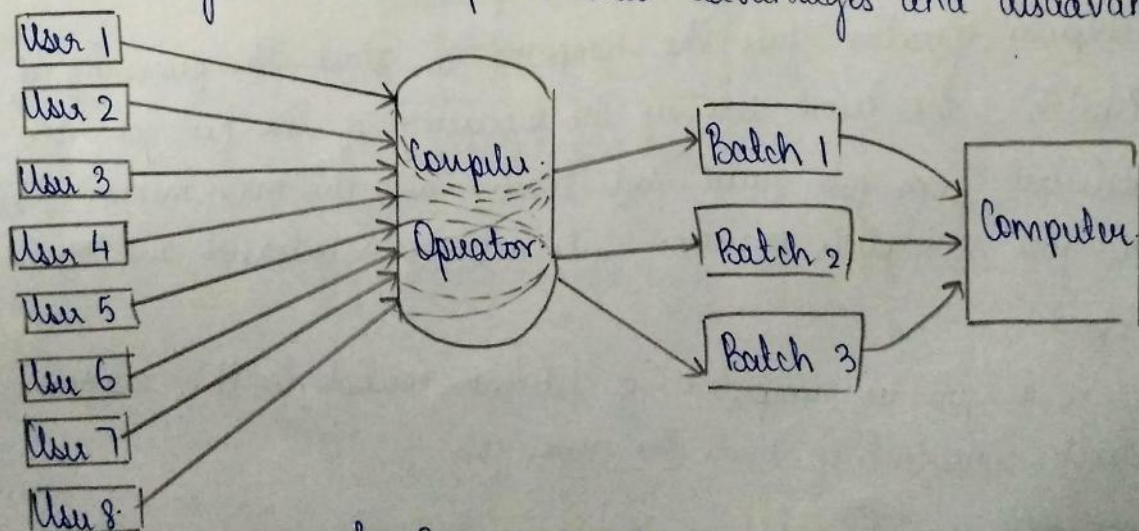 advantages and
User 1
User 2
User 3
User 4
User 5
User 6
User 7
User 8.
Compiler.
Operator.
Batch 1
Batch 2
Batch 3
Computer.